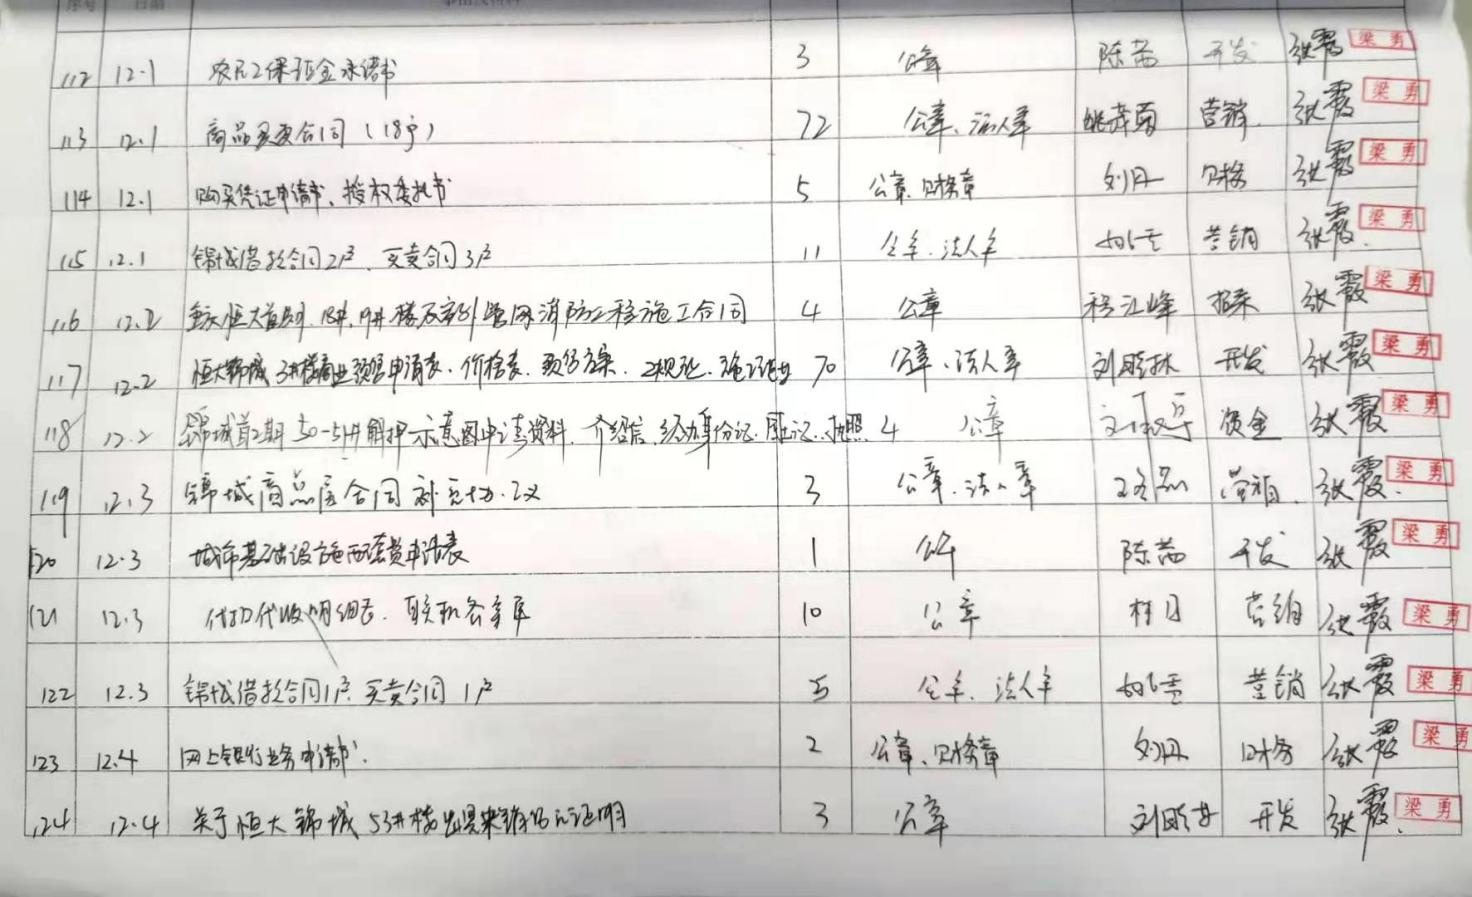 序号 日期
112 12.1 农民工保证金承诺书 3 公章 陈茜 开发 张霞 梁勇
113 12.1 商品买卖合同（18户） 72 公章、法人章 营销 张霞 梁勇
114 12.1 购买凭证申请书、授权委托书 5 公章、财务章 刘丹 财务 张霞 梁勇
115 12.1 锦城借款合同2户、买卖合同3户 11 公章、法人章 营销 张霞 梁勇
116 12.2 重庆恒大 消防工程施工合同 4 公章 程江峰 招采 张霞 梁勇
117 12.2 恒大锦城 3#楼商业预售申请表、价格表、预售方案、 70 公章、法人章 开发 张霞 梁勇
118 12.2 锦城首2期50-51#解押示意图申请资料、介绍信、经办身份证、国土证、执照 4 公章 资金 张霞 梁勇
119 12.3 锦城商品房合同补充协议 3 公章、法人章 营销 张霞 梁勇
120 12.3 城市基础设施配套费申请表 1 公章 陈茜 开发 张霞 梁勇
121 12.3 代扣代收明细表、 10 公章 营销 张霞 梁勇
122 12.3 锦城借款合同1户、买卖合同1户 5 公章、法人章 营销 张霞 梁勇
123 12.4 网上银行业务申请书、 2 公章、财务章 刘丹 财务 张霞 梁勇
124 12.4 关于恒大锦城53#楼出具 证明 3 公章 开发 张霞 梁勇